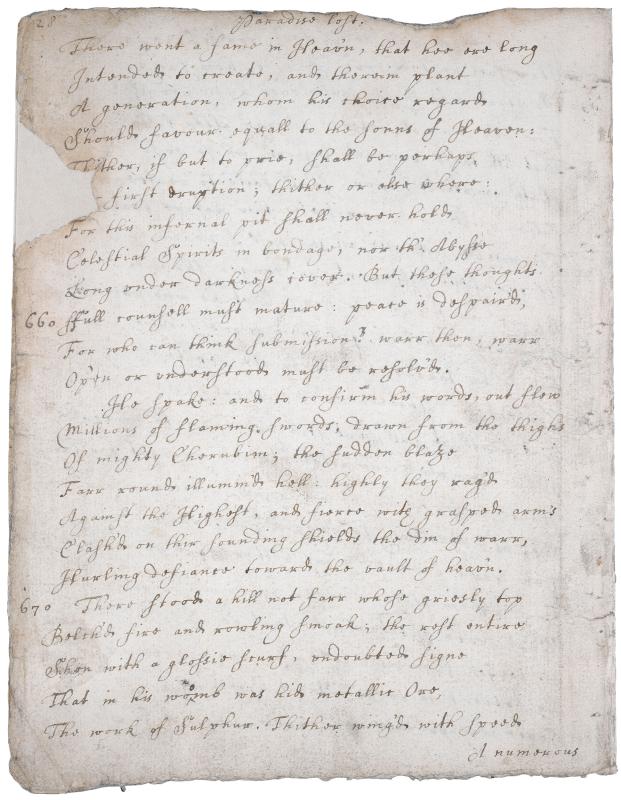 28 Paradise lost.
There went a fame in Heav'n, that hee ere long
Intended to create, and therein plant
A generation, whom his choice regard
Should favour equall to the sonns of Heaven:
Thither, if but to prie, shall be perhaps
first eruption; thither or else where:
For this infernal pit shall never hold
Celestial Spirits in bondage, nor th' Abysse
Long under darkness cover. But these thoughts
660 Full counsell must mature: peace is despair'd,
For who can think submission? warr then, warr
Open or understood must be resolv'd.
He spake: and to confirm his words, out flew
Millions of flaming swords, drawn from the thighs
Of mighty Cherubim; the sudden blaze
Farr round illumin'd hell: highly they rag'd
Against the Highest, and fierce with grasped arm's
Clash'd on thir sounding shields the din of warr,
Hurling defiance toward the vault of heav'n.
670 There stood a hill not farr whose griesly top
Belch'd fire and rowling smoak; the rest entire
Shon with a glossie scurf, undoubted signe
That in his womb was hid metallic Ore,
The work of Sulphur. Thither wing'd with speed
A numerous